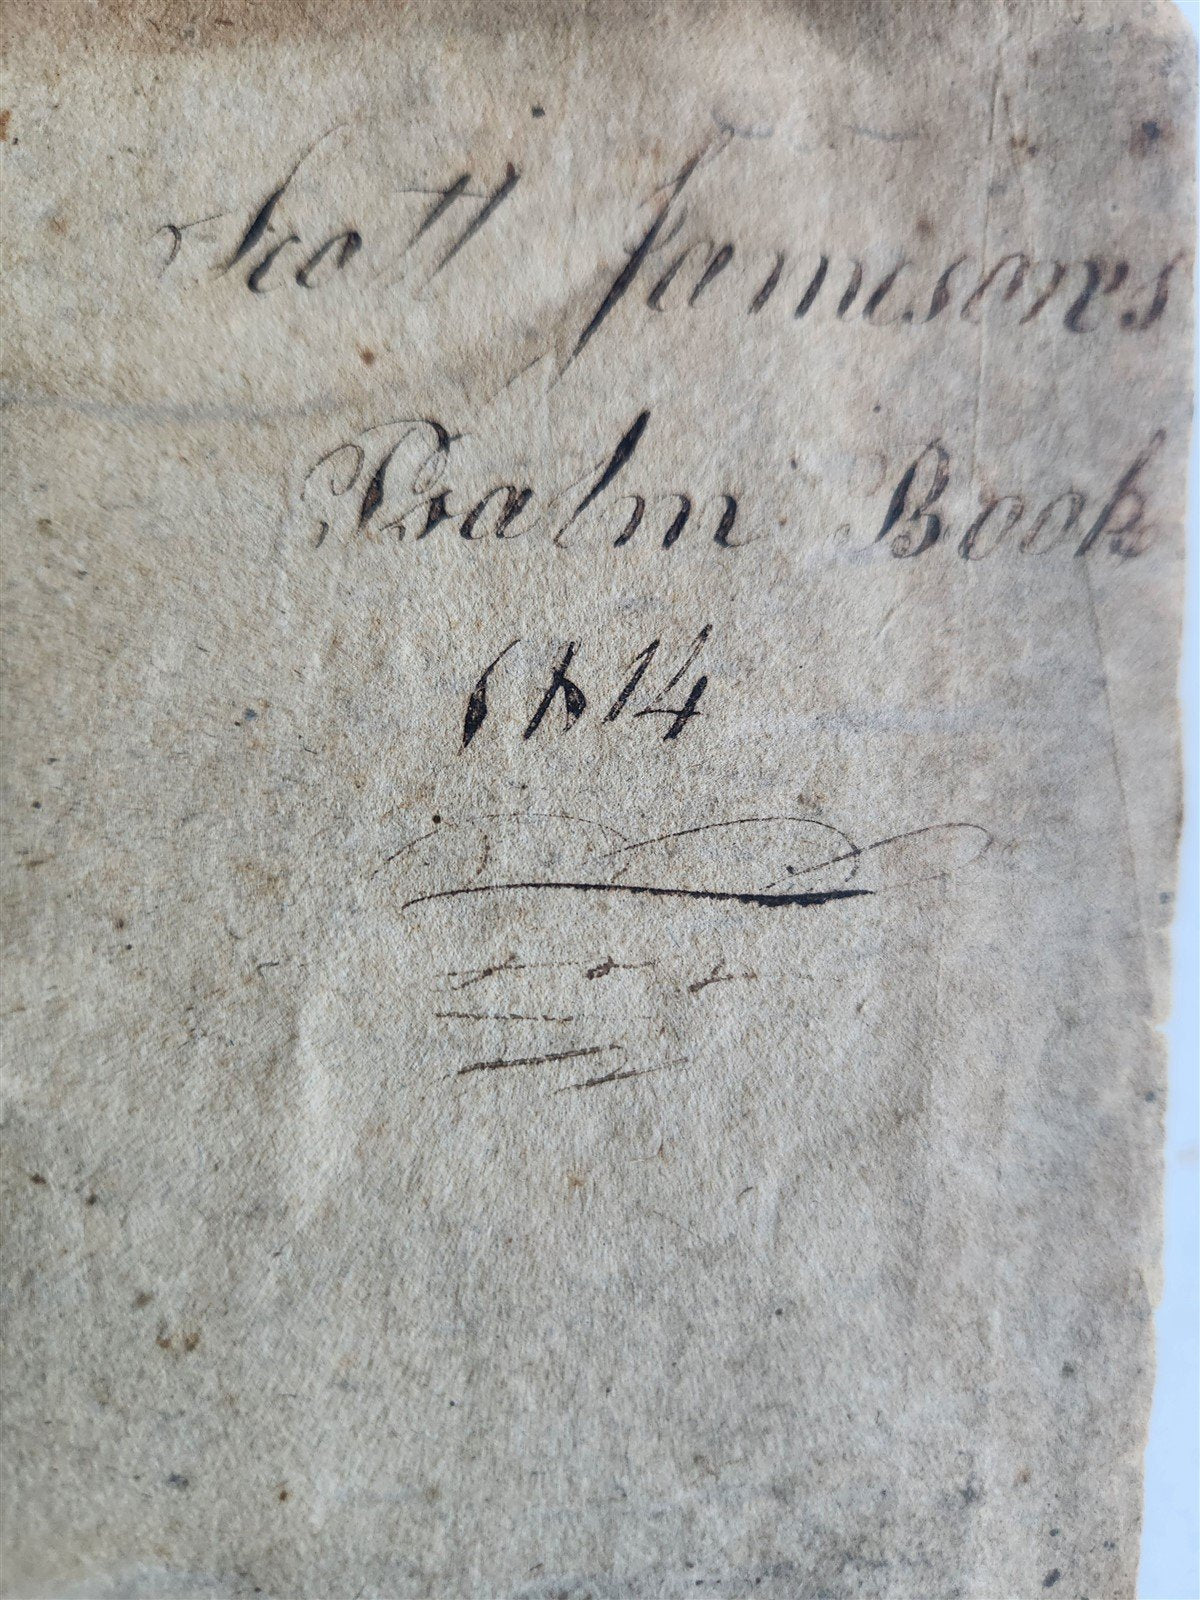 Scott Jamisons
Psalm Book
1814